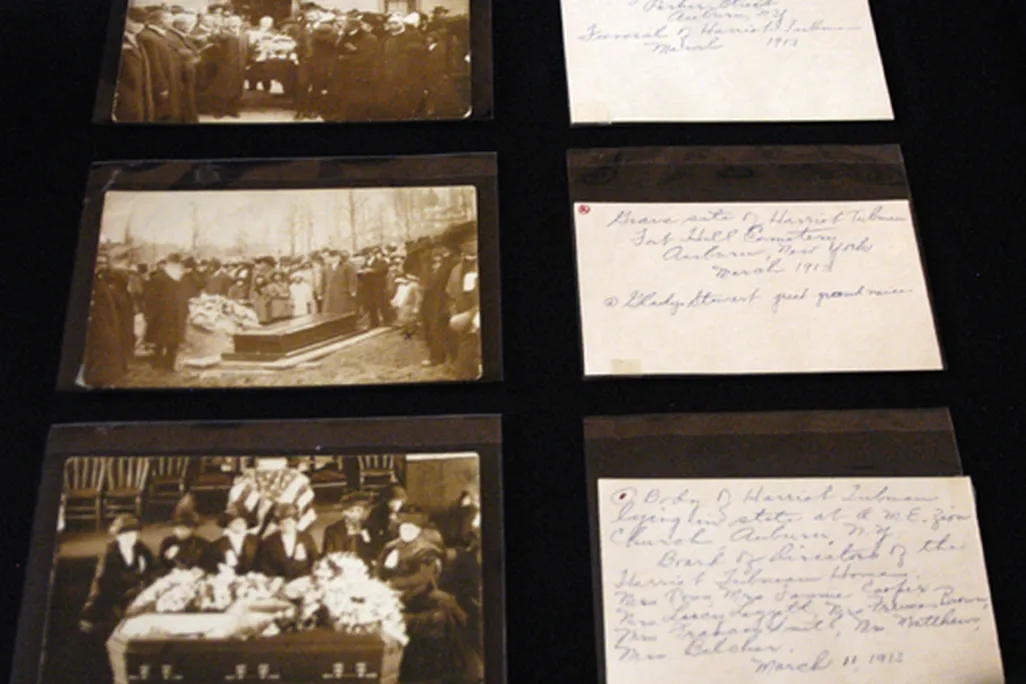 Parker Street
Auburn, N.Y
Funeral of Harriet Tubman
March 1913
Grave site of Harriet Tubman
Fort Hill Cemetery
Auburn, New York
March 1913
Gladys Stewart great grand niece
Body of Harriet Tubman
lying in state at A.M.E. Zion
Church Auburn, N.Y.
Board of Directors of the
Harriet Tubman Home.
Mrs Mrs Fannie Cooper
Mrs Lucy Mrs Brown,
Mrs Smith, Mrs Matthews,
Mrs Belcher.
March 11, 1913